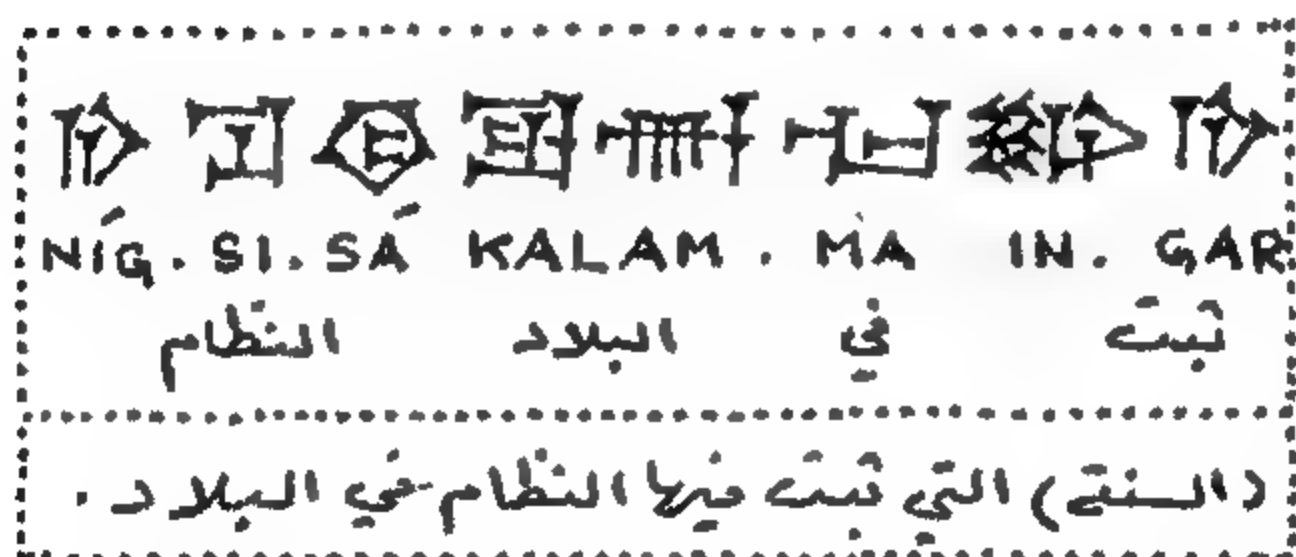 𒃻 𒋛 𒁲 𒌦 𒈠 𒅔 𒃻
NÍG. SI. SÁ KALAM. MA IN. GAR
ثبت في البلاد النظام
(السنة) التي ثبت فيها النظام في البلاد.